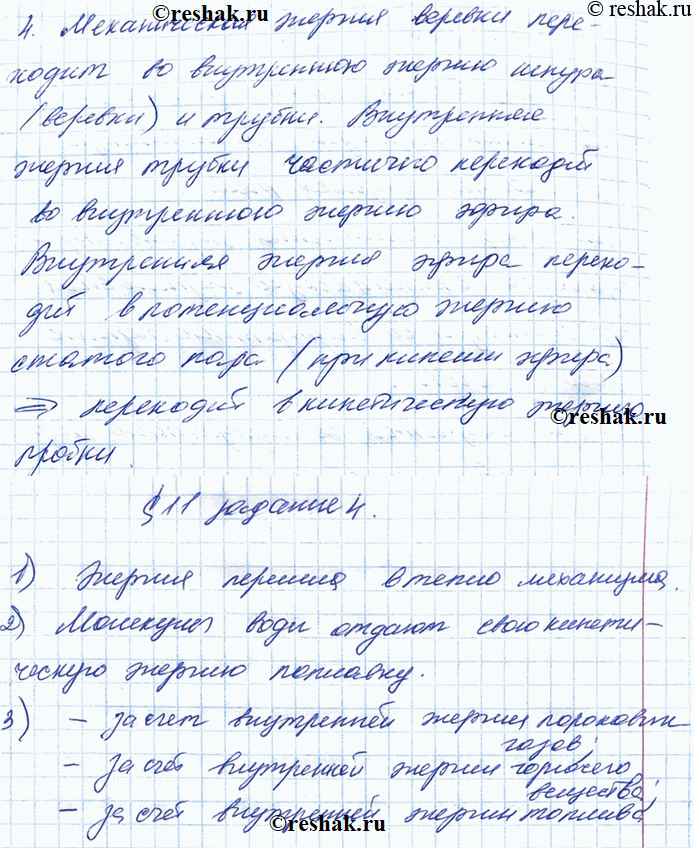 ©reshak.ru
©reshak.ru
4. Механическая энергия веревки пере-
ходит во внутреннюю энергию шнура
(веревки) и трубки. Внутренняя
энергия трубки частично переходит
во внутреннюю энергию эфира.
Внутренняя энергия эфира перехо-
дит в потенциальную энергию
сжатого пара (при кипении эфира)
⇒ переходит в кинетическую энергию
©reshak.ru
пробки
§11 задание 4.
1) Энергия перешла в тепло механизма.
2) Молекулы воды отдают свою кинети-
ческую энергию поплавку.
3) – за счет внутренней энергии пороховых
газов;
– За счёт внутренней энергии горючего
вещества;
– за счёт внутренней энергии топлива
©reshak.ru